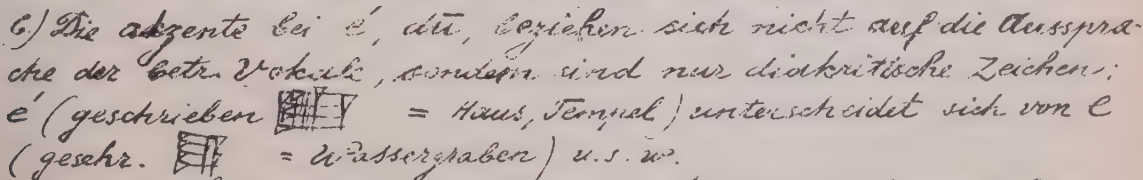 6.) Die akzente bei é, dū, beziehen sich nicht auf die Ausspra-
che der betr. Vokale, sondern sind nur diakritische Zeichen;
é (geschrieben = Haus, Tempel) unterscheidet sich von e
(geschr. = Wassergraben) u.s.w.